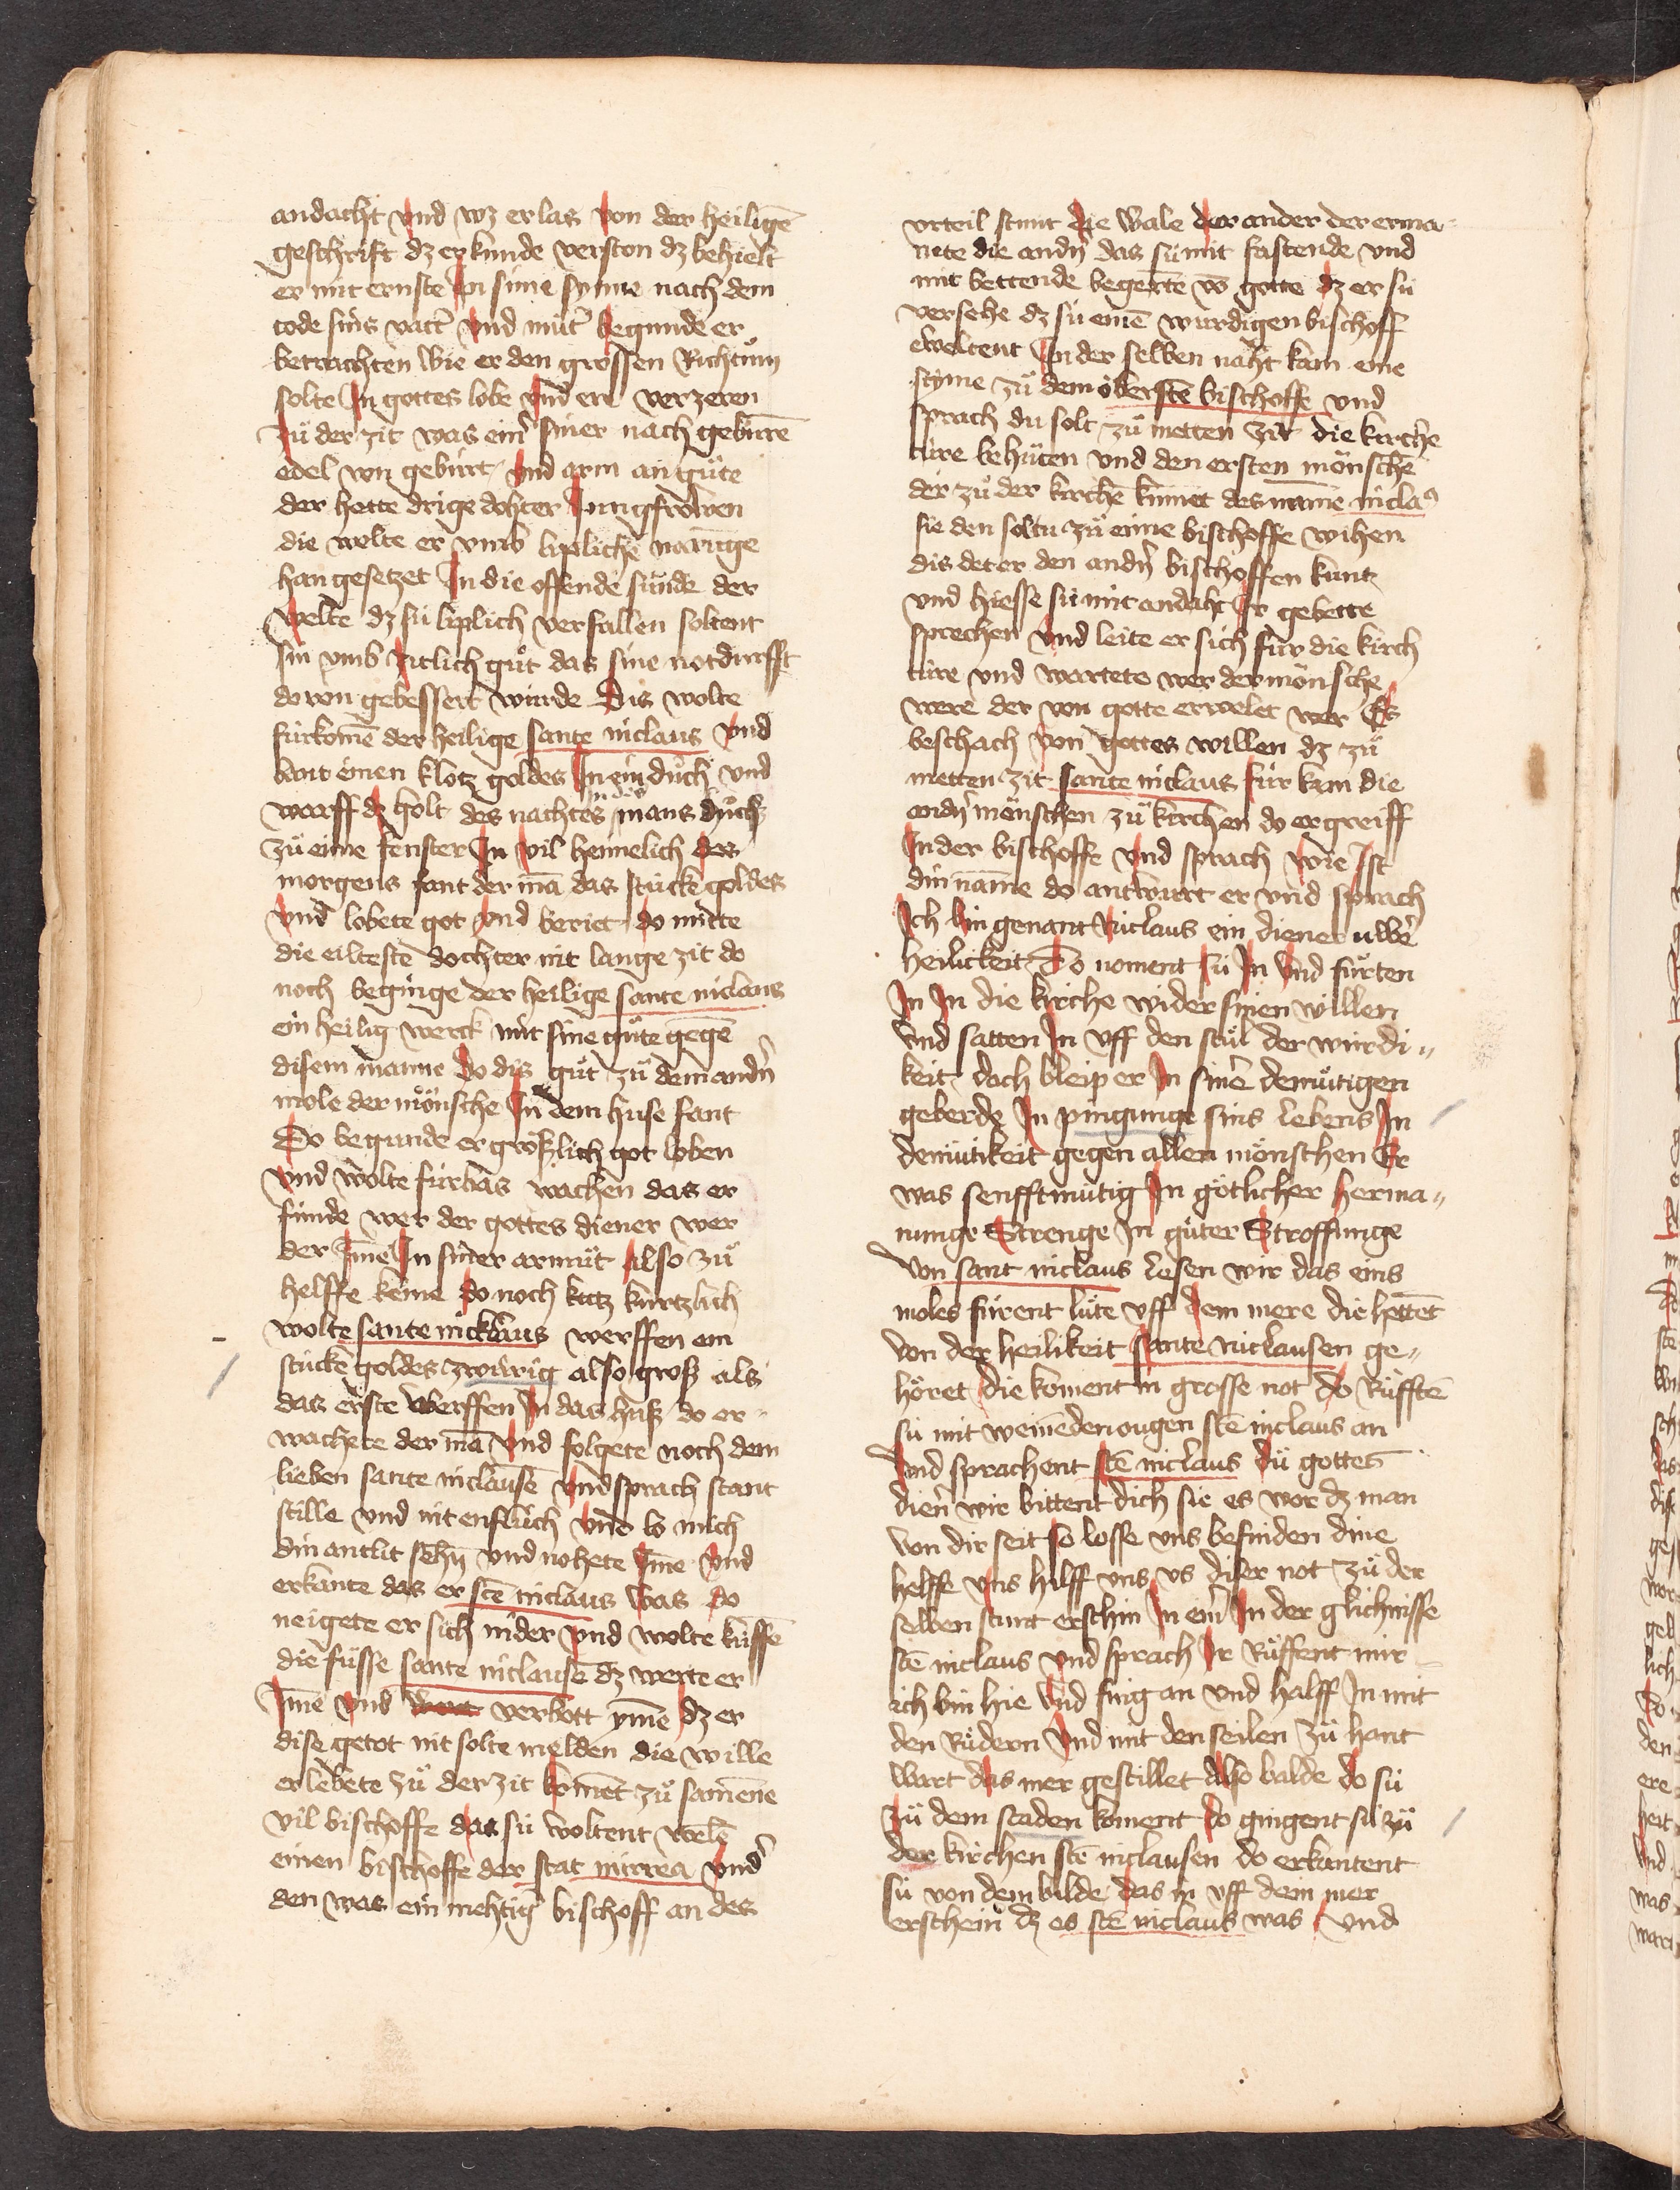 andacht vnd wz er las von der heiligē
geschrift dz er kunde verston dz behielt
er mit ernste In sime synne nach dem
tode sins vatt' vnd mut' begunde er
betrachten wie er den grossen Richtum
solte In gottes lobe vnd ere verzeren
zů der zit was ein' siner nach geburrē
edel von geburt vnd arm an gůte
der hette drige dohter Jungfrowen
die welte er vmb lipliche narunge
han gesetzet In die offende sunde der
welte dz sü liplich verfallen soltent
sin vmb zitlich gůt das sine notdurfft
do von gebessert wurde Dis wolte
fürkomē der heilige sante niclaus vnd
bant einen klotz goldes In ein důch vnd
warff dz golt des nachtes In des mans hus
zů eime fenster In vil heimelich des
morgens fant der mā das stücke goldes
vnd lobete got vnd beriet do mitte
die eilteste dochter nit lange zit do
noch beginge der heilige sante niclaus
ein heilig werck mit sine gůte gegē
disem manne Do dis gůt zů dem andn̄
mole der mönsche In dem huse fant
Do begunde er größlich got loben
vnd wolte fürbas wachen das er
funde wer der gottes diener wer
der Ime In siner armůt also zů
helffe keme Do noch kurtz kurtzlich
wolte sante nicklaus werffen ein
stücke goldes zwürig also groß als
das erste werffen In das huß do er
wachete der mā vnd folgete noch dem
lieben sante niclausē vnd sprach stant
stille vnd nit enfluch vnd lo mich
din antlit sehn̄ vnd nohete Ime vnd
erkante das er stē niclaus was do
neigete er sich nider vnd wolte kussē
die füsse sante niclausē dz werte er
Ime vnd verbott yme dz er
dise getot nit solte melden die wille
er lebete zů der zit koment zů samene
vil bischoffe das sü woltent welē
einen bischoffe der stat mirrea vnd'
den was ein mehtig' bischoff an des
vrteil stunt die wale der ander der erma
nete die andn̄ das sü mit fastende vnd
mit bettende begertē vō gotte dz er sü
versehe dz sü einē würdigen bischoff
eweltent In der selben naht kam eine
styme zů dem öberstē bischoffe vnd
sprach du solt zů metten zit die kirche
türe behüten vnd den ersten mönschē
der zů der kirchē kumet des name niclaꝰ
sie den soltu zů eime bischoffe wihen
dis det er den andn̄ bischoffen kunt
vnd hiesse sü mit andaht Ir gebette
sprechen vnd leite er sich für die kirch
türe vnd wartete wer der mönsche
were der von gotte erwelet wer Es
beschach von gottes willen dz zů
metten zit sante niclaus für kam die
andn̄ mönschen zů kirchen do ergreiff
In der bischoffe vnd sprach wie Ist
din name do antwurt er vnd sprach
Ich bin genant Niclaus ein diener uwer
heilickeit Do noment sü In vnd fürten
In In die kirche wider sinen willen
vnd satten In vff den stůl der würdi
keit doch bleip er In sinē demůtigen
geberde In pingunge sins lebens In
demůtikeit gegen allen mönschen Er
was senfftmůtig In götlicher herma
nunge Strenge In gůter Stroffunge
Von sant niclaus lesen wir das eins
moles fůrent lüte vff dem mere die hettēt
von der heilikeit sante niclausen ge
höret die koment in grosse not do Růfftē
sü mit weinēden ougen stē niclaus an
vnd sprachent stē niclaus dü gottes
dien̄ wir bittent dich sie es wor dz man
von dir seit so losse vns befinden dine
helffe vns hilff vns vs diser not zů der
selben stunt erschin In ein' In der glichnisse
stē niclaus vnd sprach Ir Růffent mir
ich bin hie vnd fing an vnd halff In mit
den Růdern vnd mit den seilen zů hant
wart das mer gestillet Also balde do sü
zů dem staden koment do gingent sü zů
der kirchen stē niclausen do erkantent
sü von dem bilde das In vff dem mer
erschein dz es stē niclaus was vnd